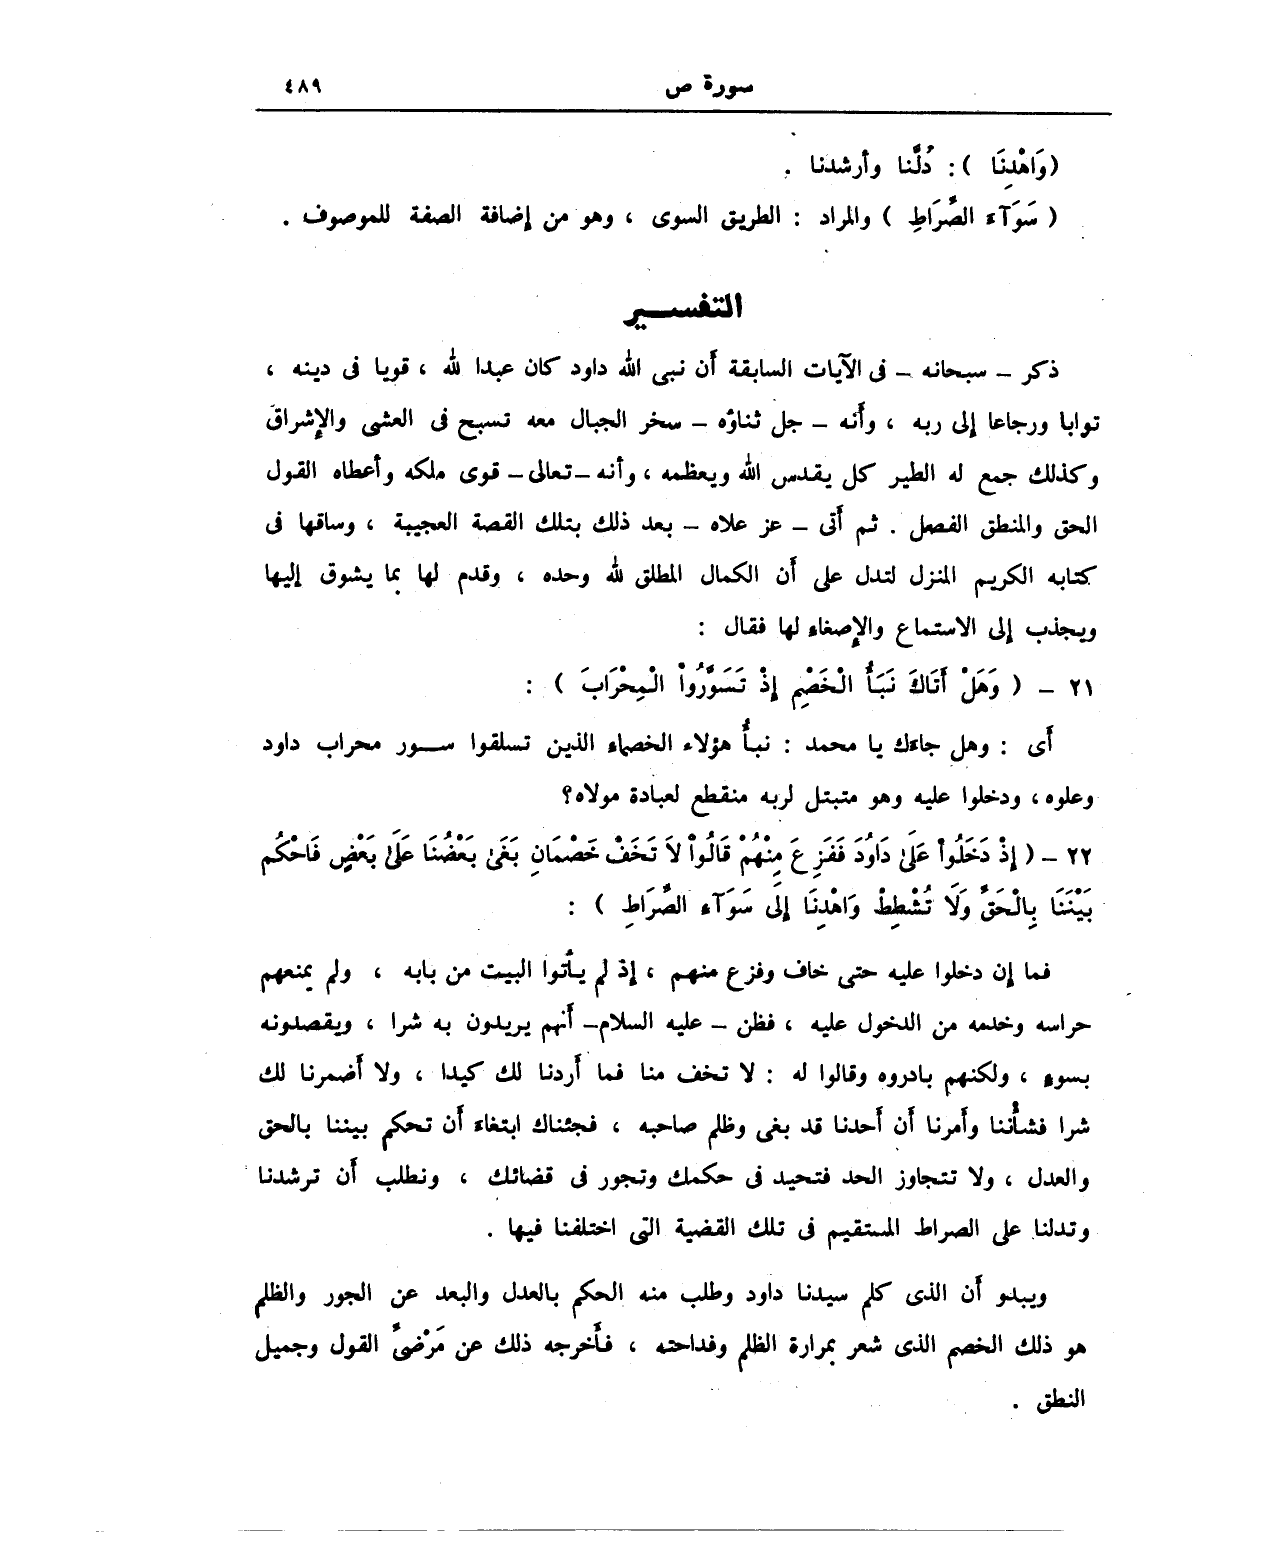 سورة ص
٤٨٩
(وَاهْدِنَا ) : دُلَّنا وأرشدنا .
( سَوَآءِ الصِّرَاطِ ) والمراد : الطريق السوى ، وهو من إضافة الصفة للموصوف .
التفســـير
ذكر – سبحانه – فى الآيات السابقة أن نبى الله داود كان عبدا لله ، قويا فى دينه ،
توابا ورجاعا إلى ربه ، وأنه – جل ثناؤه – سخر الجبال معه تسبح فى العشى والإشراق
وكذلك جمع له الطير كل يقدس الله ويعظمه ، وأنه –تعالى– قوى ملكه وأعطاه القول
الحق والمنطق الفصل . ثم أتى – عز علاه – بعد ذلك بتلك القصة العجيبة ، وساقها فى
كتابه الكريم المنزل لتدل على أن الكمال المطلق لله وحده ، وقدم لها بما يشوق إليها
ويجذب إلى الاستماع والإصغاء لها فقال :
٢١ – ( وَهَلْ أَتَاكَ نَبَأُ الْخَصْمِ إِذْ تَسَوَّرُواْ الْمِحْرَابَ ) :
أى : وهل جاءك يا محمد : نبأُ هؤلاء الخصماء الذين تسلقوا ســور محراب داود
وعلوه ، ودخلوا عليه وهو متبتل لربه منقطع لعبادة مولاه؟
٢٢ – ( إِذْ دَخَلُواْ عَلَىٰ دَاوُدَ فَفَزِعَ مِنْهُمْ قَالُواْ لَا تَخَفْ خَصْمَانِ بَغَىٰ بَعْضُنَا عَلَىٰ بَعْضٍ فَاحْكُم
بَيْنَنَا بِالْحَقِّ وَلَا تُشْطِطْ وَاهْدِنَا إِلَىٰ سَوَآءِ الصِّرَاطِ ) :
فما إن دخلوا عليه حتى خاف وفزع منهم ، إذ لم يأتوا البيت من بابه ، ولم يمنعهم
حراسه وخدمه من الدخول عليه ، فظن – عليه السلام– أنهم يريدون به شرا ، ويقصدونه
بسوء ، ولكنهم بادروه وقالوا له : لا تخف منا فما أردنا لك كيدا ، ولا أضمرنا لك
شرا فشأننا وأمرنا أن أحدنا قد بغى وظلم صاحبه ، فجئناك ابتغاء أن تحكم بيننا بالحق
والعدل ، ولا تتجاوز الحد فتحيد فى حكمك وتجور فى قضائك ، ونطلب أن ترشدنا
وتدلنا على الصراط المستقيم فى تلك القضية التى اختلفنا فيها .
ويبدو أن الذى كلم سيدنا داود وطلب منه الحكم بالعدل والبعد عن الجور والظلم
هو ذلك الخصم الذى شعر بمرارة الظلم وفداحته ، فأخرجه ذلك عن مَرْضىِّ القول وجميل
النطق .